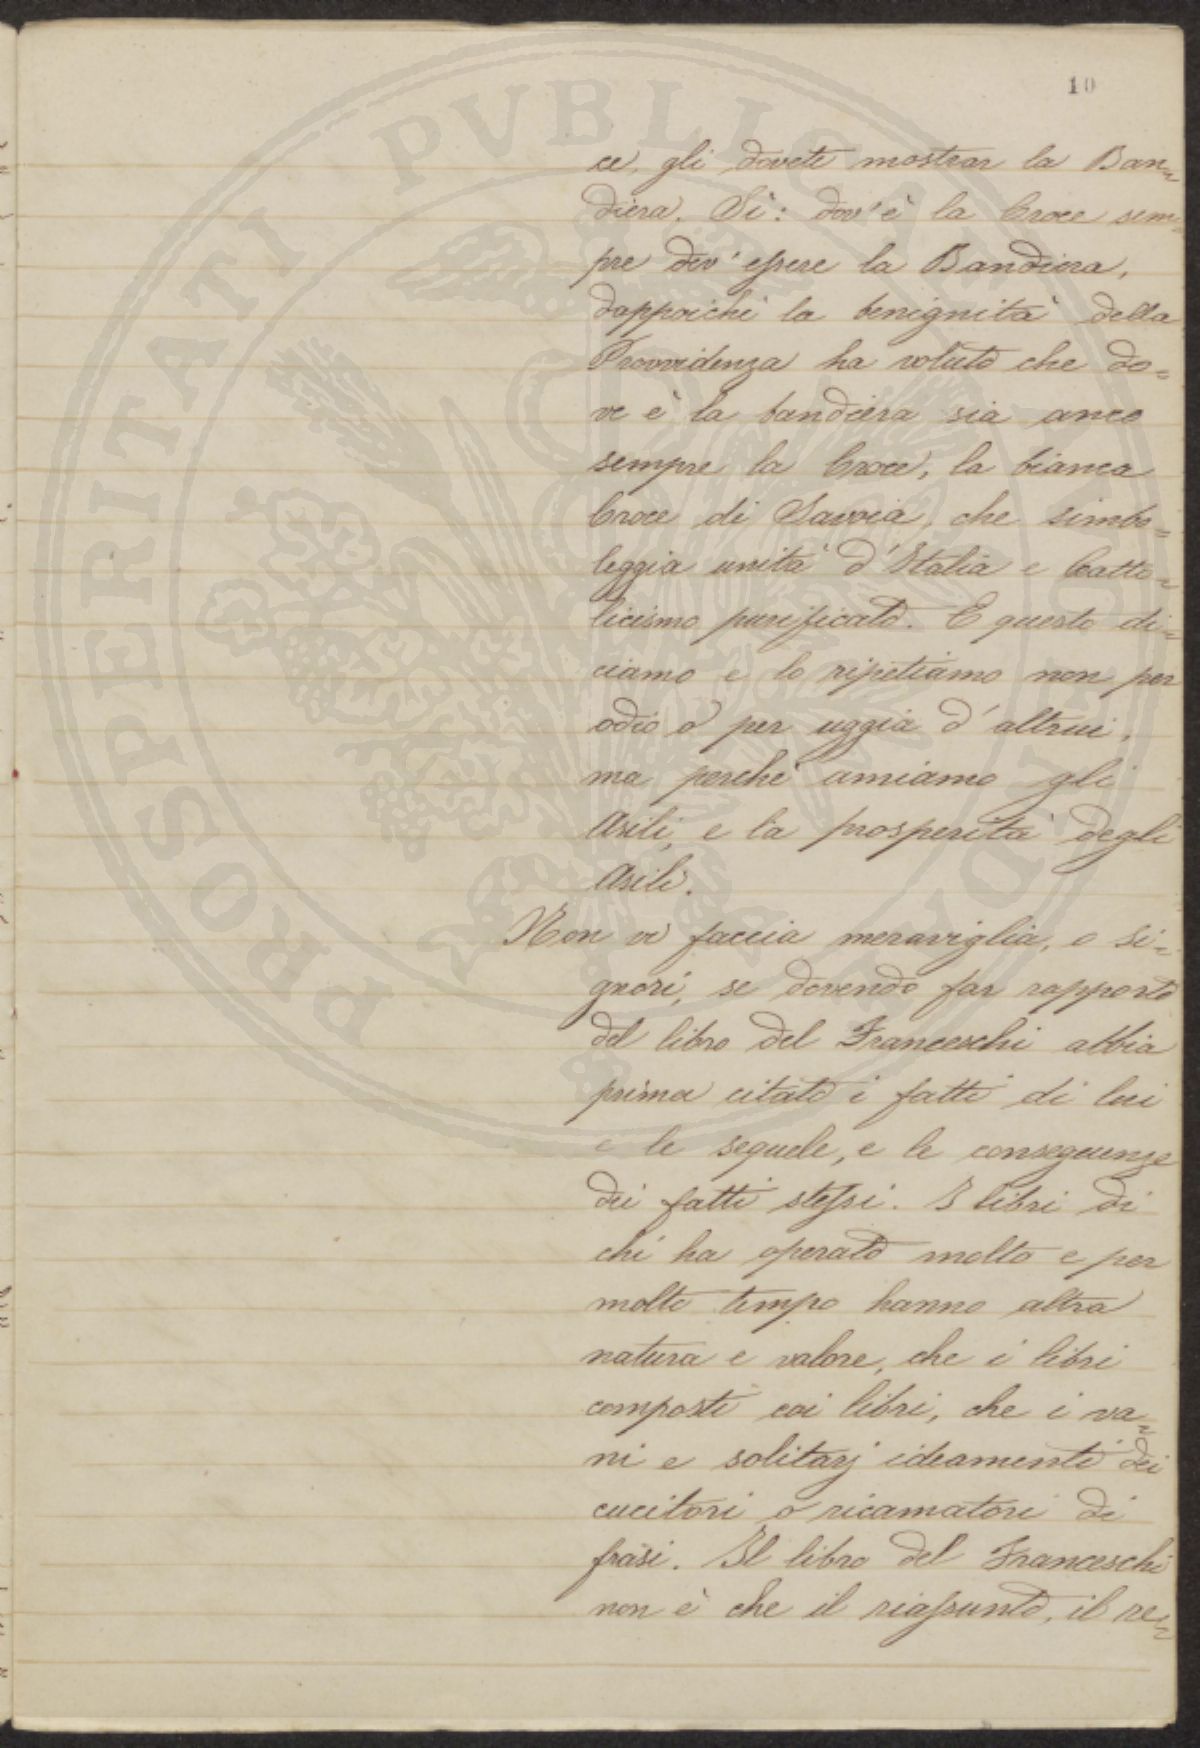 10
ce, gli dovete mostrar la Ban=
diera. Sì: dov'è la Croce sem=
pre dev'essere la Bandiera,
dappoichè la benignità della
Provvidenza ha voluto che do=
ve è la bandiera sia anco
sempre la Croce, la bianca
Croce di Savoia, che simbo=
leggia unità d'Italia e Catto=
licismo purificato. E questo di=
ciamo e lo ripetiamo non per
odio o per uggia d'altrui,
ma perchè amiamo gli
Asili, e la prosperità degli
Asili.
Non vi faccia meraviglia, o Si=
gnori, se dovendo far rapporto
del libro del Franceschi abbia
prima citato i fatti di lui
e le sequele, e le conseguenze
dei fatti stessi. I libri di
chi ha operato molto e per
molto tempo hanno altra
natura e valore, che i libri
composti coi libri, che i va=
ni e solitarj ideamenti dei
cucitori o ricamatori di
frasi. Il libro del Franceschi
non è che il riassunto, il re=
PROSPERITATI PVBLICAE AVGENDAE